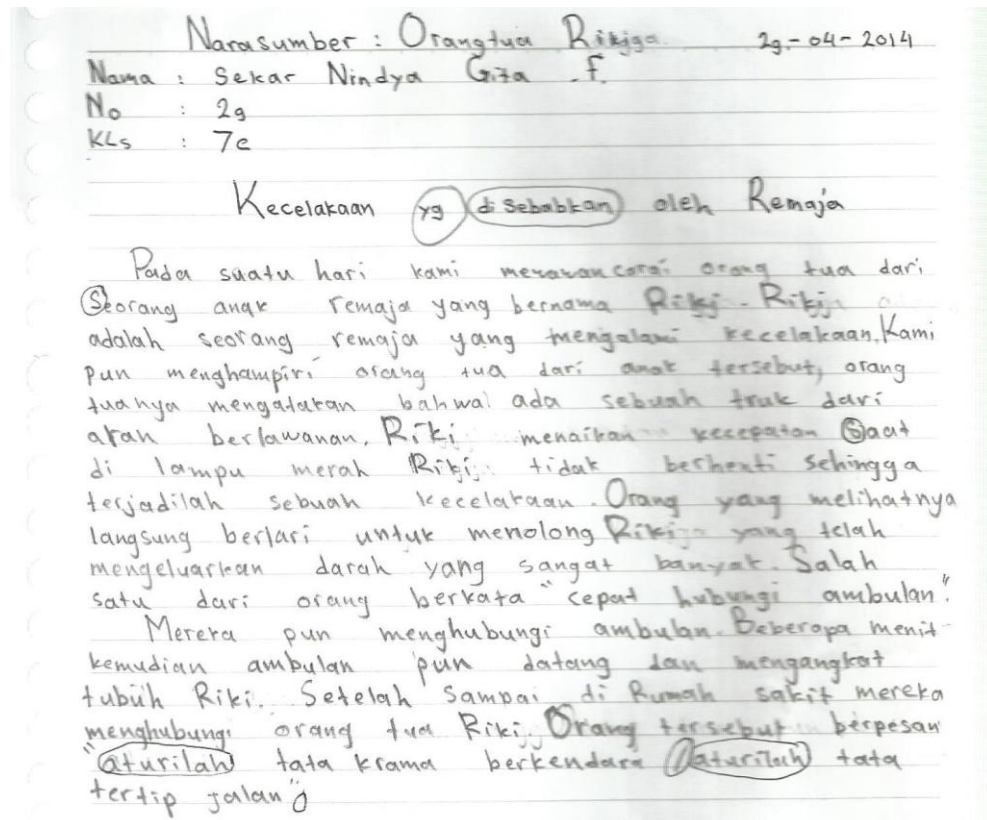 Narasumber : Orangtua Rikjga 29-04-2014
Nama : Sekar Nindya Gita .F.
No : 29
KLs : 7e
Kecelakaan yg disebabkan oleh Remaja
Pada suatu hari kami orang tua dari
Seorang anak remaja yang bernama Riki. Riki
adalah seorang remaja yang mengalami kecelakaan. Kami
pun menghampiri orang tua dari anak tersebut, orang
tuanya mengatakan bahwa ada sebuah truk dari
arah berlawanan. Riki menaikan kecepatan Saat
di lampu merah Riki tidak berhenti sehingga
terjadilah sebuah kecelakaan. Orang yang melihatnya
langsung berlari untuk menolong Riki yang telah
mengeluarkan darah yang sangat banyak. Salah
satu dari orang berkata "cepat hubungi ambulan".
Mereka pun menghubungi ambulan. Beberapa menit
kemudian ambulan pun datang dan mengangkat
tubuh Riki. Setelah sampai di Rumah sakit mereka
menghubungi orang tua Riki. Orang tersebut berpesan
"aturilah tata krama berkendara aturilah tata
tertip jalan"